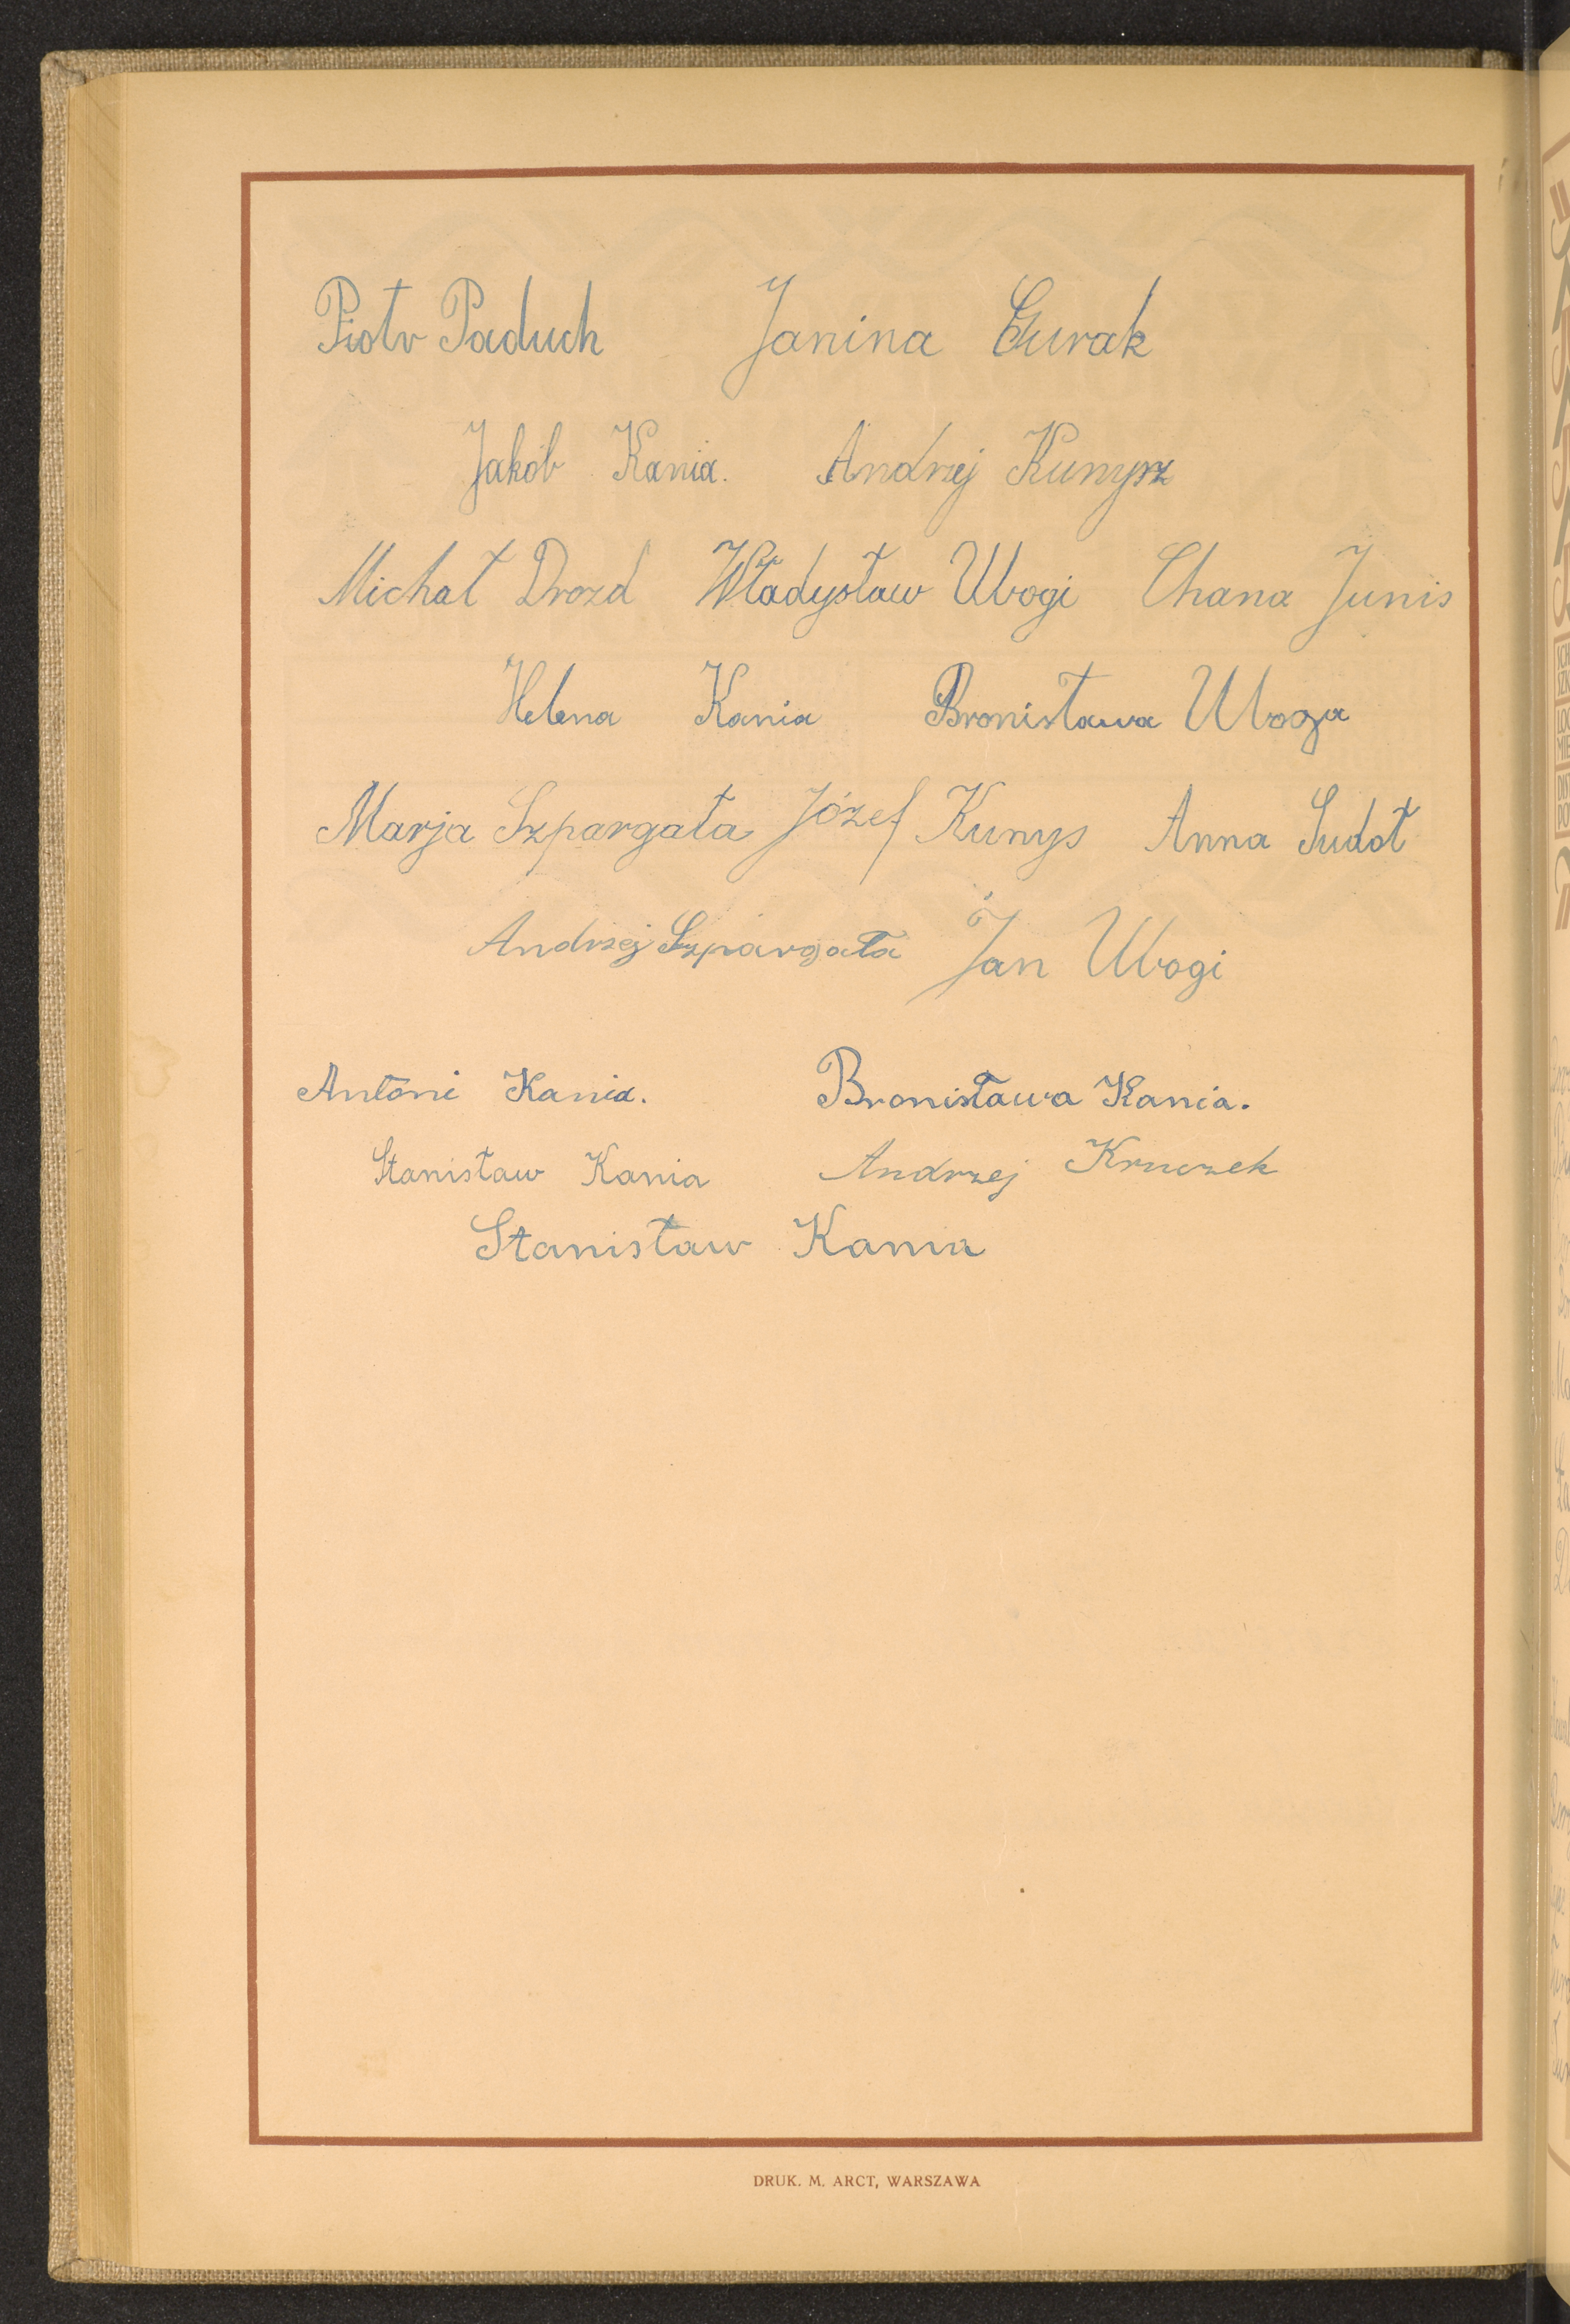 Piotr Paduch Janina Gurak
Jakób Kania. Andrzej Kunysz
Michał Drozd Władysław Ubogi Chana Junis
Helena Kania Bronisława Uboga
Marja Szpargała Józef Kunys Anna Sudoł
Andrzej Szpargała Jan Ubogi
Antoni Kania. Bronisława Kania.
Stanisław Kania Andrzej Kruczek
Stanisław Kania
DRUK. M. ARCT, WARSZAWA